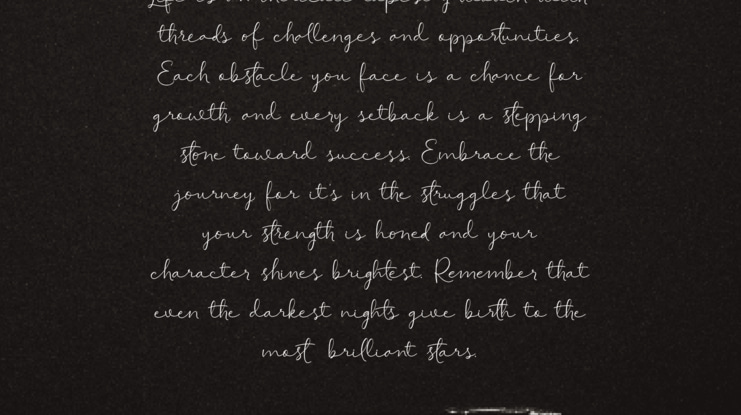 Life is an intricate tapestry woven with
threads of challenges and opportunities.
Each obstacle you face is a chance for
growth and every setback is a stepping
stone toward success. Embrace the
journey for it's in the struggles that
your strength is honed and your
character shines brightest. Remember that
even the darkest nights give birth to the
most brilliant stars.